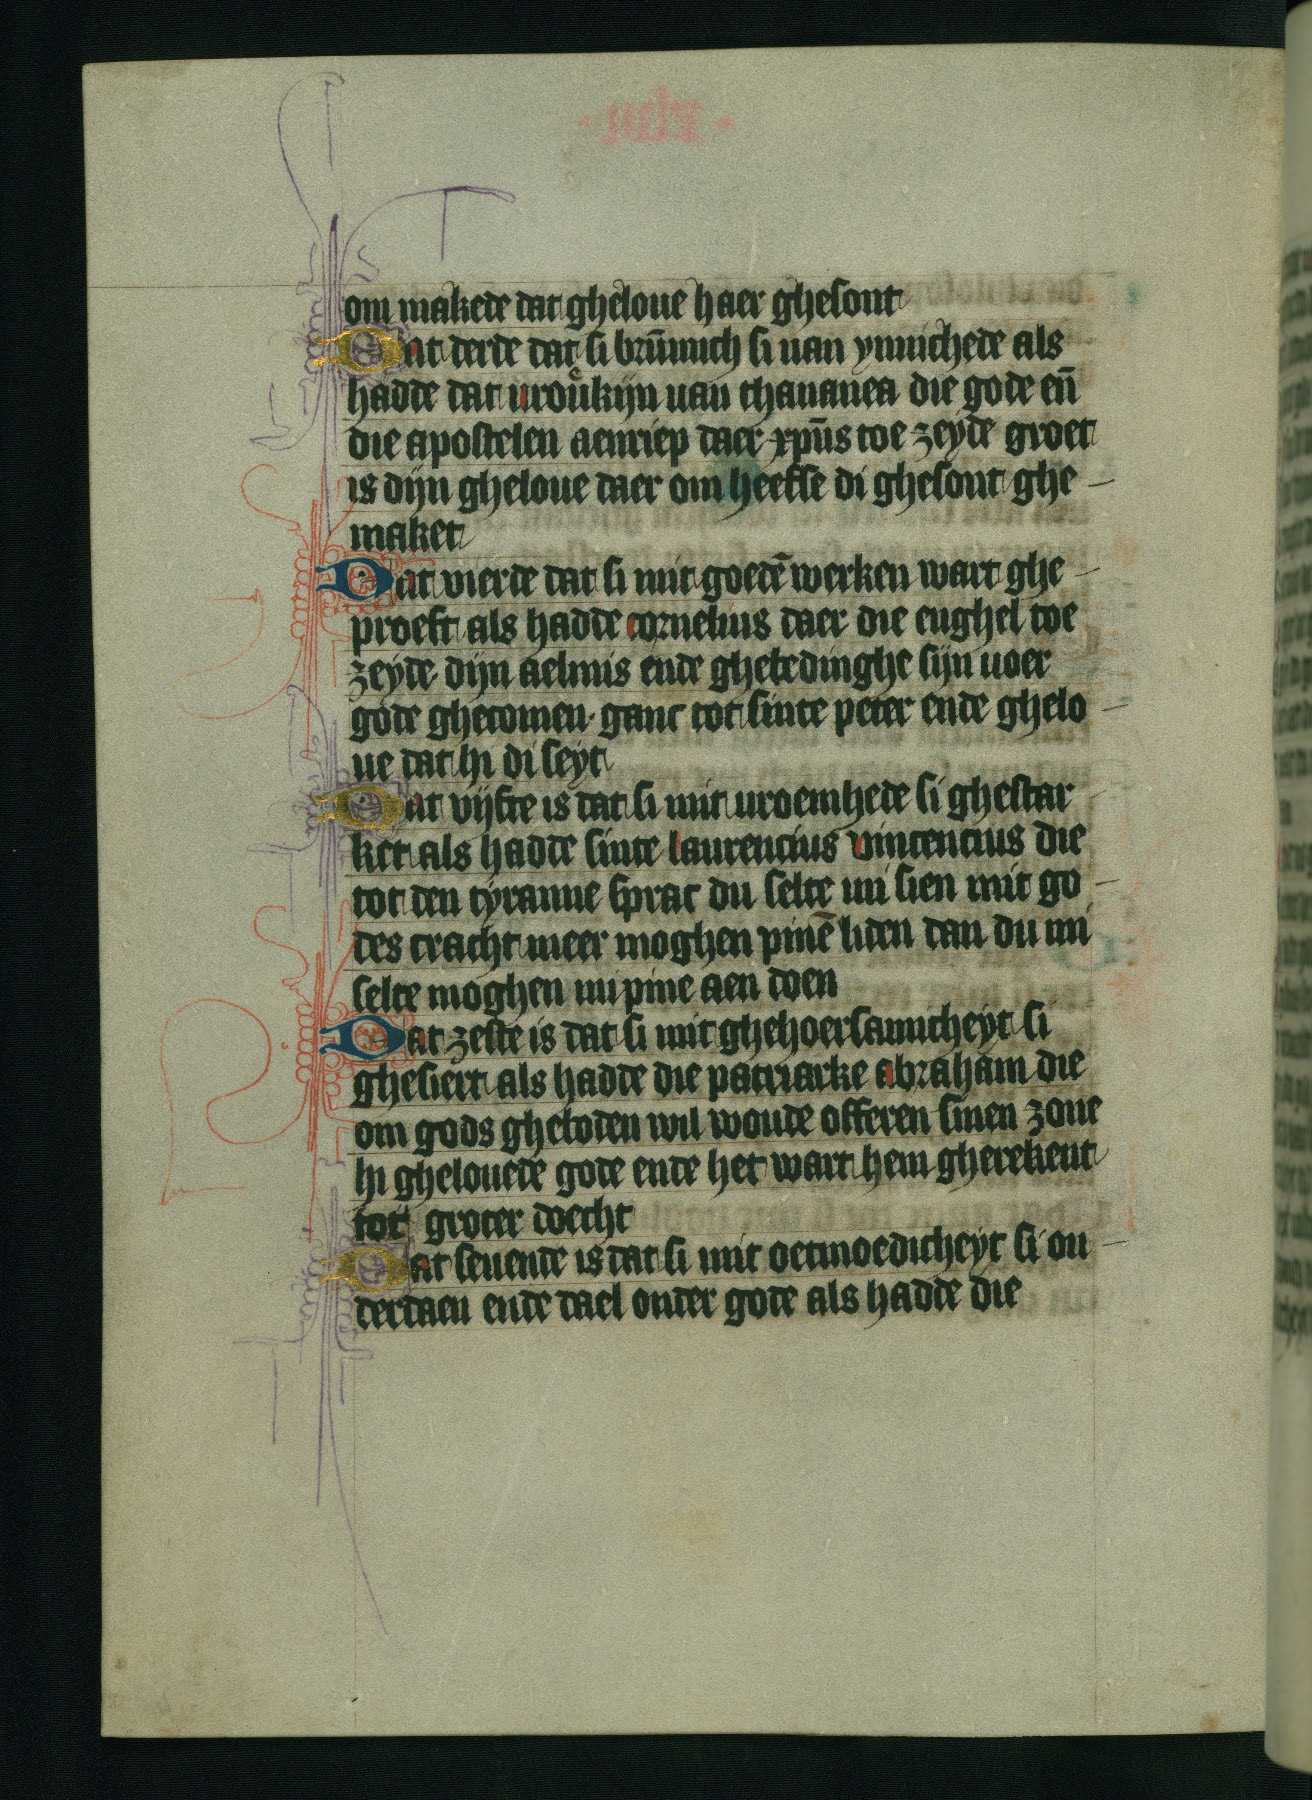 om makede dat gheloue haer ghesont
Dat derde dat si brūnich si uan ynnichede als
hadde dat urouͦkijn uan chananea die gode eñ
die apostelen aenriep daer xpūs toe zeyde groet
is dijn gheloue daer om heefse di ghesont ghe
maket
Dat vierde dat si mit goedē werken wart ghe
proeft als hadde cornelius daer die enghel toe
zeyde dijn aelmis ende ghebedinghe sijn uoer
gode ghecomen· ganc tot sinte peter ende ghelo
ue dat hi di seyt
Dat vijfte is dat si mit uroemhede si ghestar
ket als hadde sinte laurencius vincencius die
tot den tyranne sprac du selte mi sien mit go
des cracht meer moghen pinē liden dan du mi
selte moghen mi pine aen doen
Dat zeste is dat si mit ghehoersamicheyt si
ghesiert als hadde die patriarke abraham die
om gods gheboden wil woude offeren sinen zone
hi ghelouede gode ende het wart hem gherekent
tot groter doecht
Dat seuende is dat si mit oetmoedicheyt si on
derdaen ende dael onder gode als hadde die